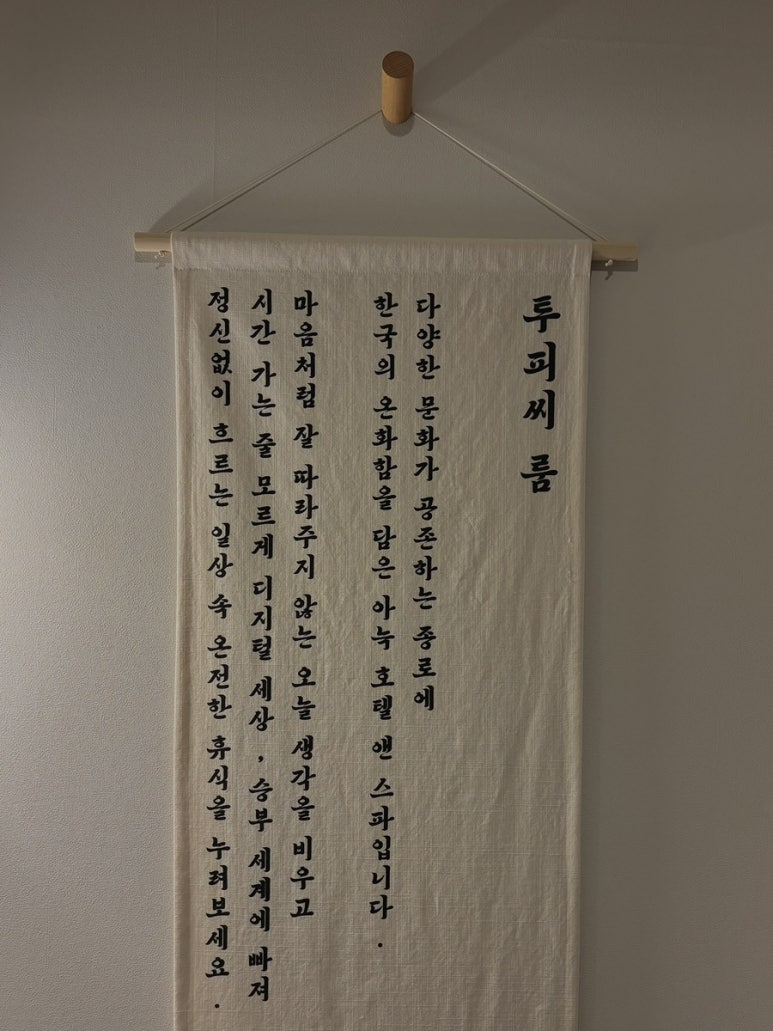 투피씨 룸
다양한 문화가 공존하는 종로에
한국의 온화함을 담은 아늑 호텔 앤 스파입니다.
마음처럼 잘 따라주지 않는 오늘 생각을 비우고
시간 가는 줄 모르게 디지털 세상, 승부 세계에 빠져
정신없이 흐르는 일상 속 온전한 휴식을 누려보세요.